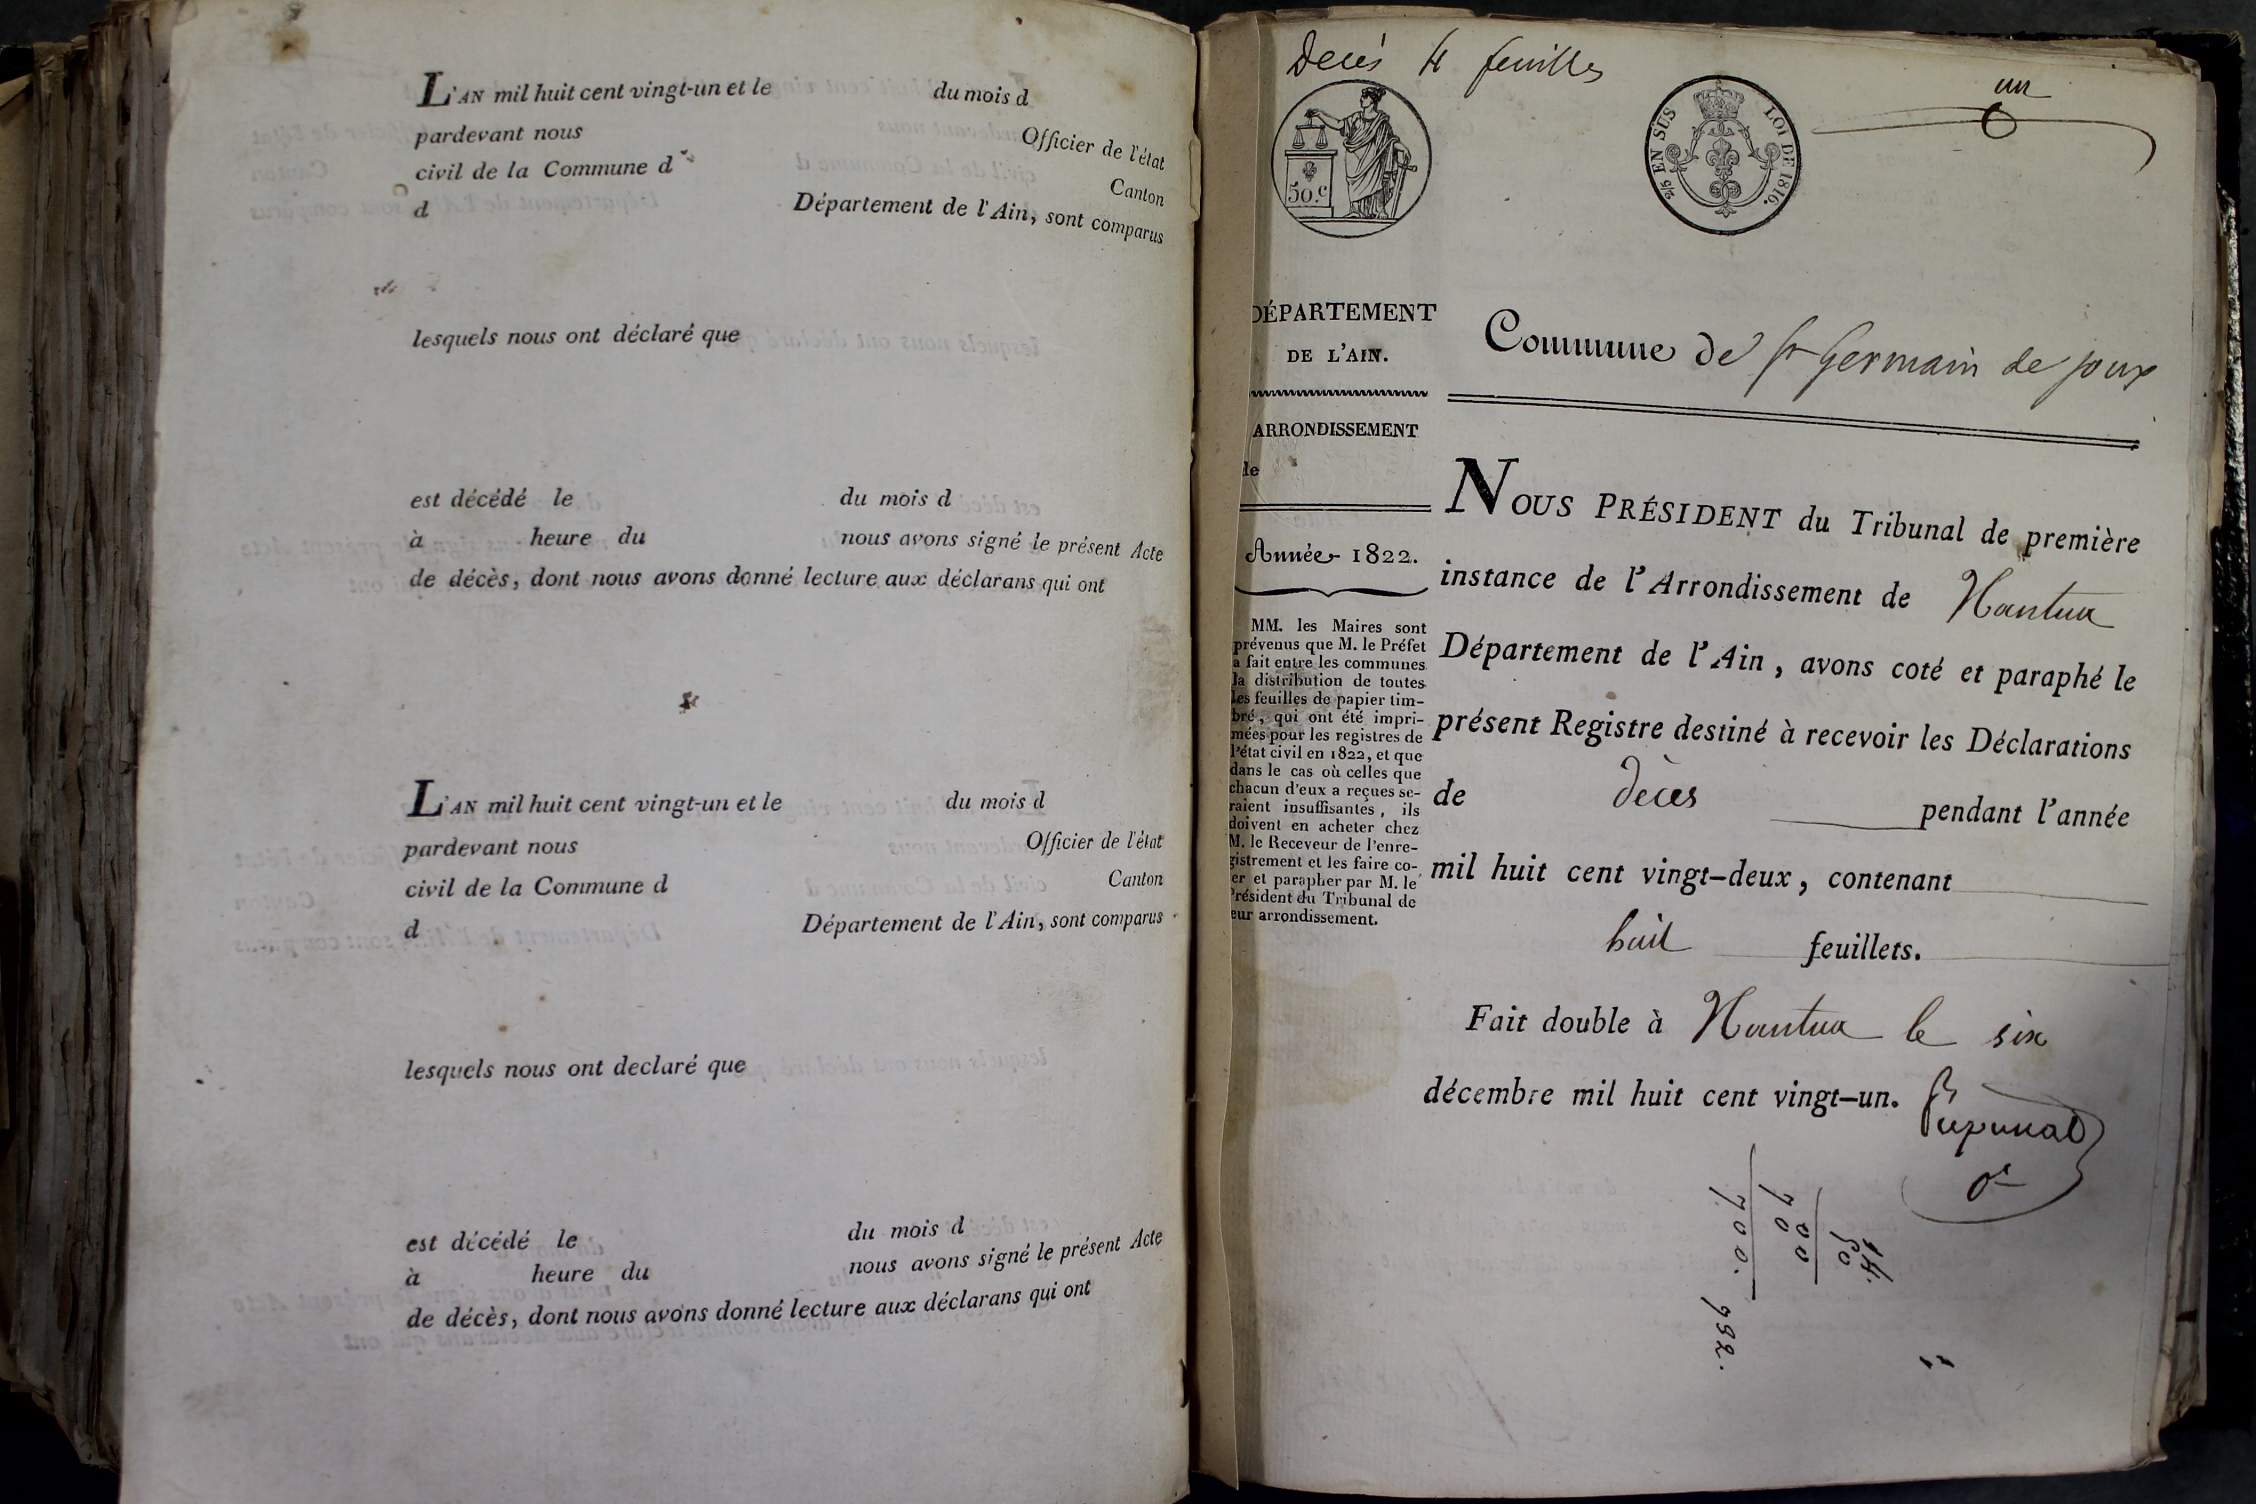 L'AN mil huit cent vingt-un et le du mois d
pardevant nous Officier de l'état
civil de la Commune d Canton
d Département de l'Ain, sont comparus
lesquels nous ont déclaré que
est décédé le du mois d
à heure du nous avons signé le présent Acte
de décès, dont nous avons donné lecture aux déclarans qui ont
L'AN mil huit cent vingt-un et le du mois d
pardevant nous Officier de l'état
civil de la Commune d Canton
d Département de l'Ain, sont comparus
lesquels nous ont declaré que
est décédé le du mois d
à heure du nous avons signé le présent Acte
de décès, dont nous avons donné lecture aux déclarans qui ont
Decés 4 feuilles
un
50.c
2/5 EN SUS LOI DE 1816.
DÉPARTEMENT
DE L'AIN.
ARRONDISSEMENT
de
Année 1822.
MM. les Maires sont
prévenus que M. le Préfet
a fait entre les communes
la distribution de toutes
les feuilles de papier tim-
bré, qui ont été impri-
mées pour les registres de
l'état civil en 1822, et que
dans le cas où celles que
chacun d'eux a reçues se-
raient insuffisantes, ils
doivent en acheter chez
M. le Receveur de l'enre-
gistrement et les faire co-
er et parapher par M. le
Président du Tribunal de
eur arrondissement.
Commune de St Germain de joux
NOUS PRÉSIDENT du Tribunal de première
instance de l'Arrondissement de Nantua
Département de l'Ain, avons coté et paraphé le
présent Registre destiné à recevoir les Déclarations
de décès pendant l'année
mil huit cent vingt-deux, contenant
huit feuillets.
Fait double à Nantua le six
décembre mil huit cent vingt-un.
14.
50
700
700. 982.